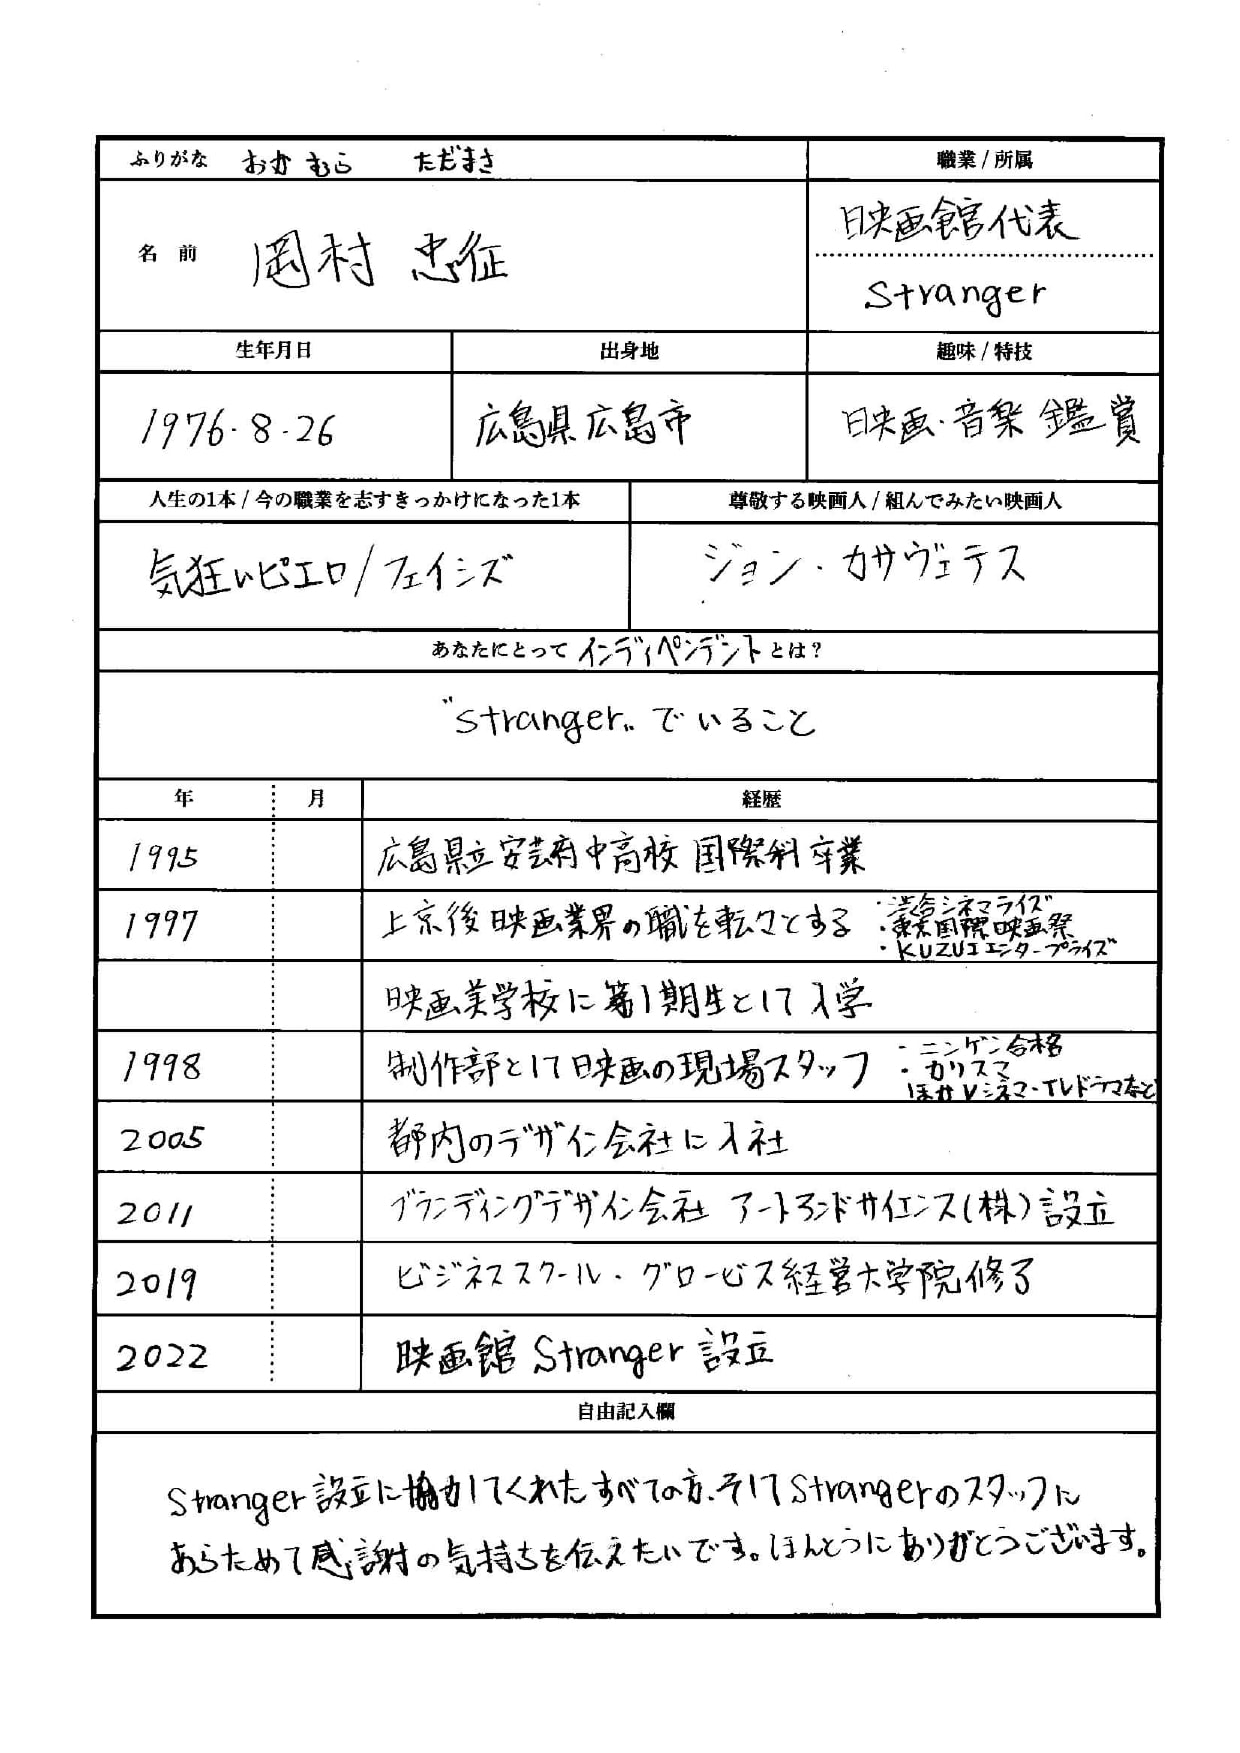 ふりがな おかむら ただまさ
職業 / 所属
名 前 岡村 忠征
映画館代表
Stranger
生年月日 出身地 趣味 / 特技
1976・8・26 広島県広島市 映画・音楽 鑑賞
人生の1本 / 今の職業を志すきっかけになった1本 尊敬する映画人 / 組んでみたい映画人
気狂いピエロ/フェイシズ ジョン・カサヴェテス
あなたにとって インディペンデント とは?
"Stranger"でいること
年 月 経歴
1995 広島県立安芸府中高校 国際科 卒業
1997 上京後 映画業界の職を転々とする
・渋谷シネマライズ
・東京国際映画祭
・KUZUIエンタープライズ
映画美学校に第1期生として入学
1998 制作部として映画の現場スタッフ
・ニンゲン合格
・カリスマ
ほかVシネマ・TVドラマなど
2005 都内のデザイン会社に入社
2011 ブランディングデザイン会社 アートアンドサイエンス(株)設立
2019 ビジネススクール・グロービス経営大学院修了
2022 映画館 Stranger 設立
自由記入欄
Stranger設立に協力してくれたすべての方、そしてStrangerのスタッフに
あらためて感謝の気持ちを伝えたいです。ほんとうにありがとうございます。